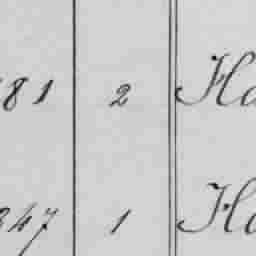 81 2 Ha
347 1 Ha